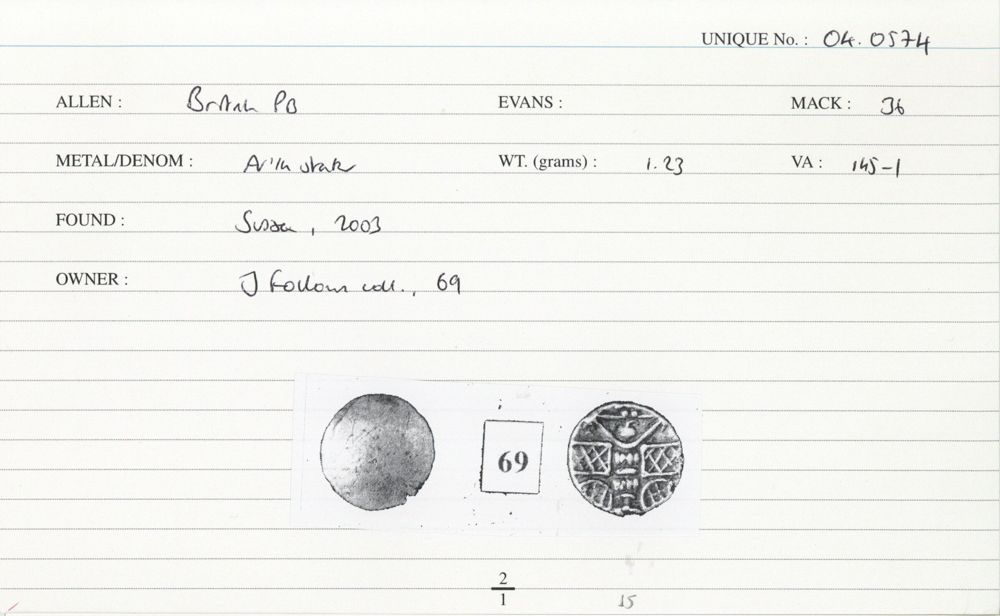 UNIQUE No. : 04.0574
ALLEN : British PB EVANS : MACK : 36
METAL/DENOM : WT. (grams) : 1.23 VA : 145-1
FOUND : Sussex, 2003
OWNER : J coll., 69
69
2
1
15